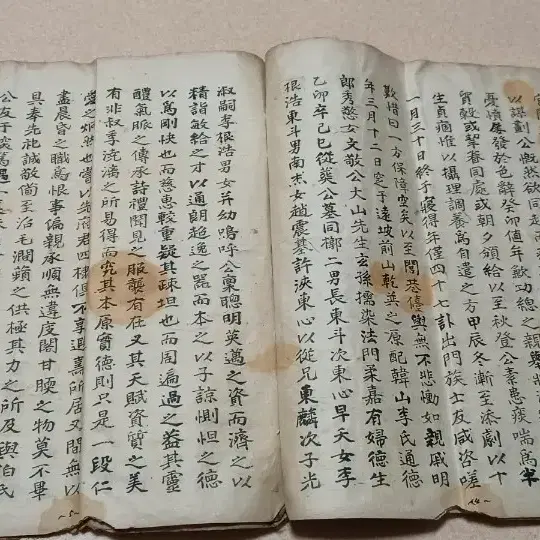 以謀劃公慨然欲同赴而
憂憤屢發於色辭癸卯値年歉功緦之親
貧窮或挈眷同處或朝夕頒給以至秋登公素患痰喘爲
生貞痼惟以攝理調養爲自遣之方甲辰冬漸至添劇以十
一月三十日終于寢得年僅四十七訃出門族士友咸咨嗟
歎惜曰一方保障空矣以至閭巷輿無不悲慟如親戚明
年三月十二日窆于遠坡前山乾坐之原配韓山李氏通德
郎秀懿女文敬公大山先生玄孫擩染法門柔嘉有婦德生
乙卯卒己巳從葬公墓同槨二男長東斗次東心早夭女李
根浩東斗男南杰女趙震基許渶東心以從兄東麟次子光
叔嗣李根浩男女幷幼嗚呼公稟聰明英邁之資而濟之以
精詣敏給之才以通朗超逸之器而本之以子諒惻怛之德
以爲剛快也而慈惠較重疑其疎坦也而周遍過之益其靈
醴氣脈之傳承詩禮聞見之服襲有在又其天賦資質之美
有非叔季澆漓之所易得而究其本原實德則只是一段仁
愛之炯然也嘗以先府君四棣俱不享遐壽所居又間無以
盡晨昏之職爲恨事偏親承順無違度閣甘腝之物莫不畢
具奉先祀誠敬備至治毛澗蘋之供極其力之所及與伯氏
公友于篤